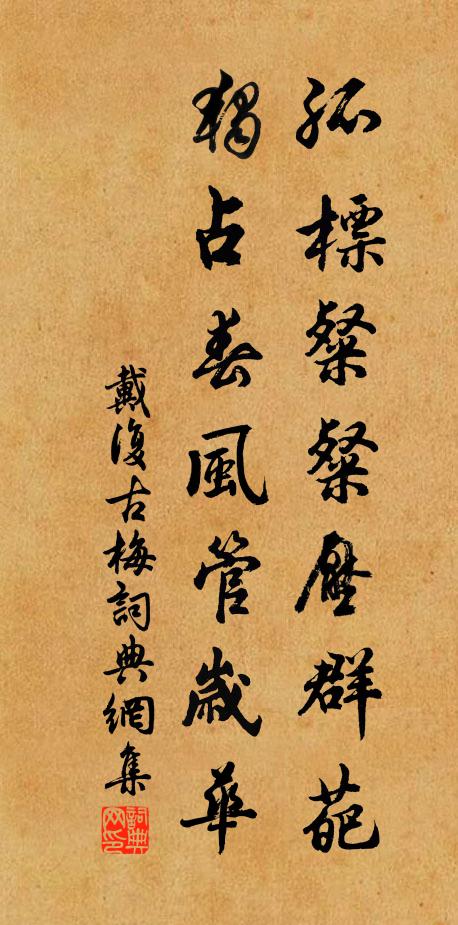 孤標粲粲壓群葩
獨占春風管歲華
戴復古梅詞典網集
詞典网印